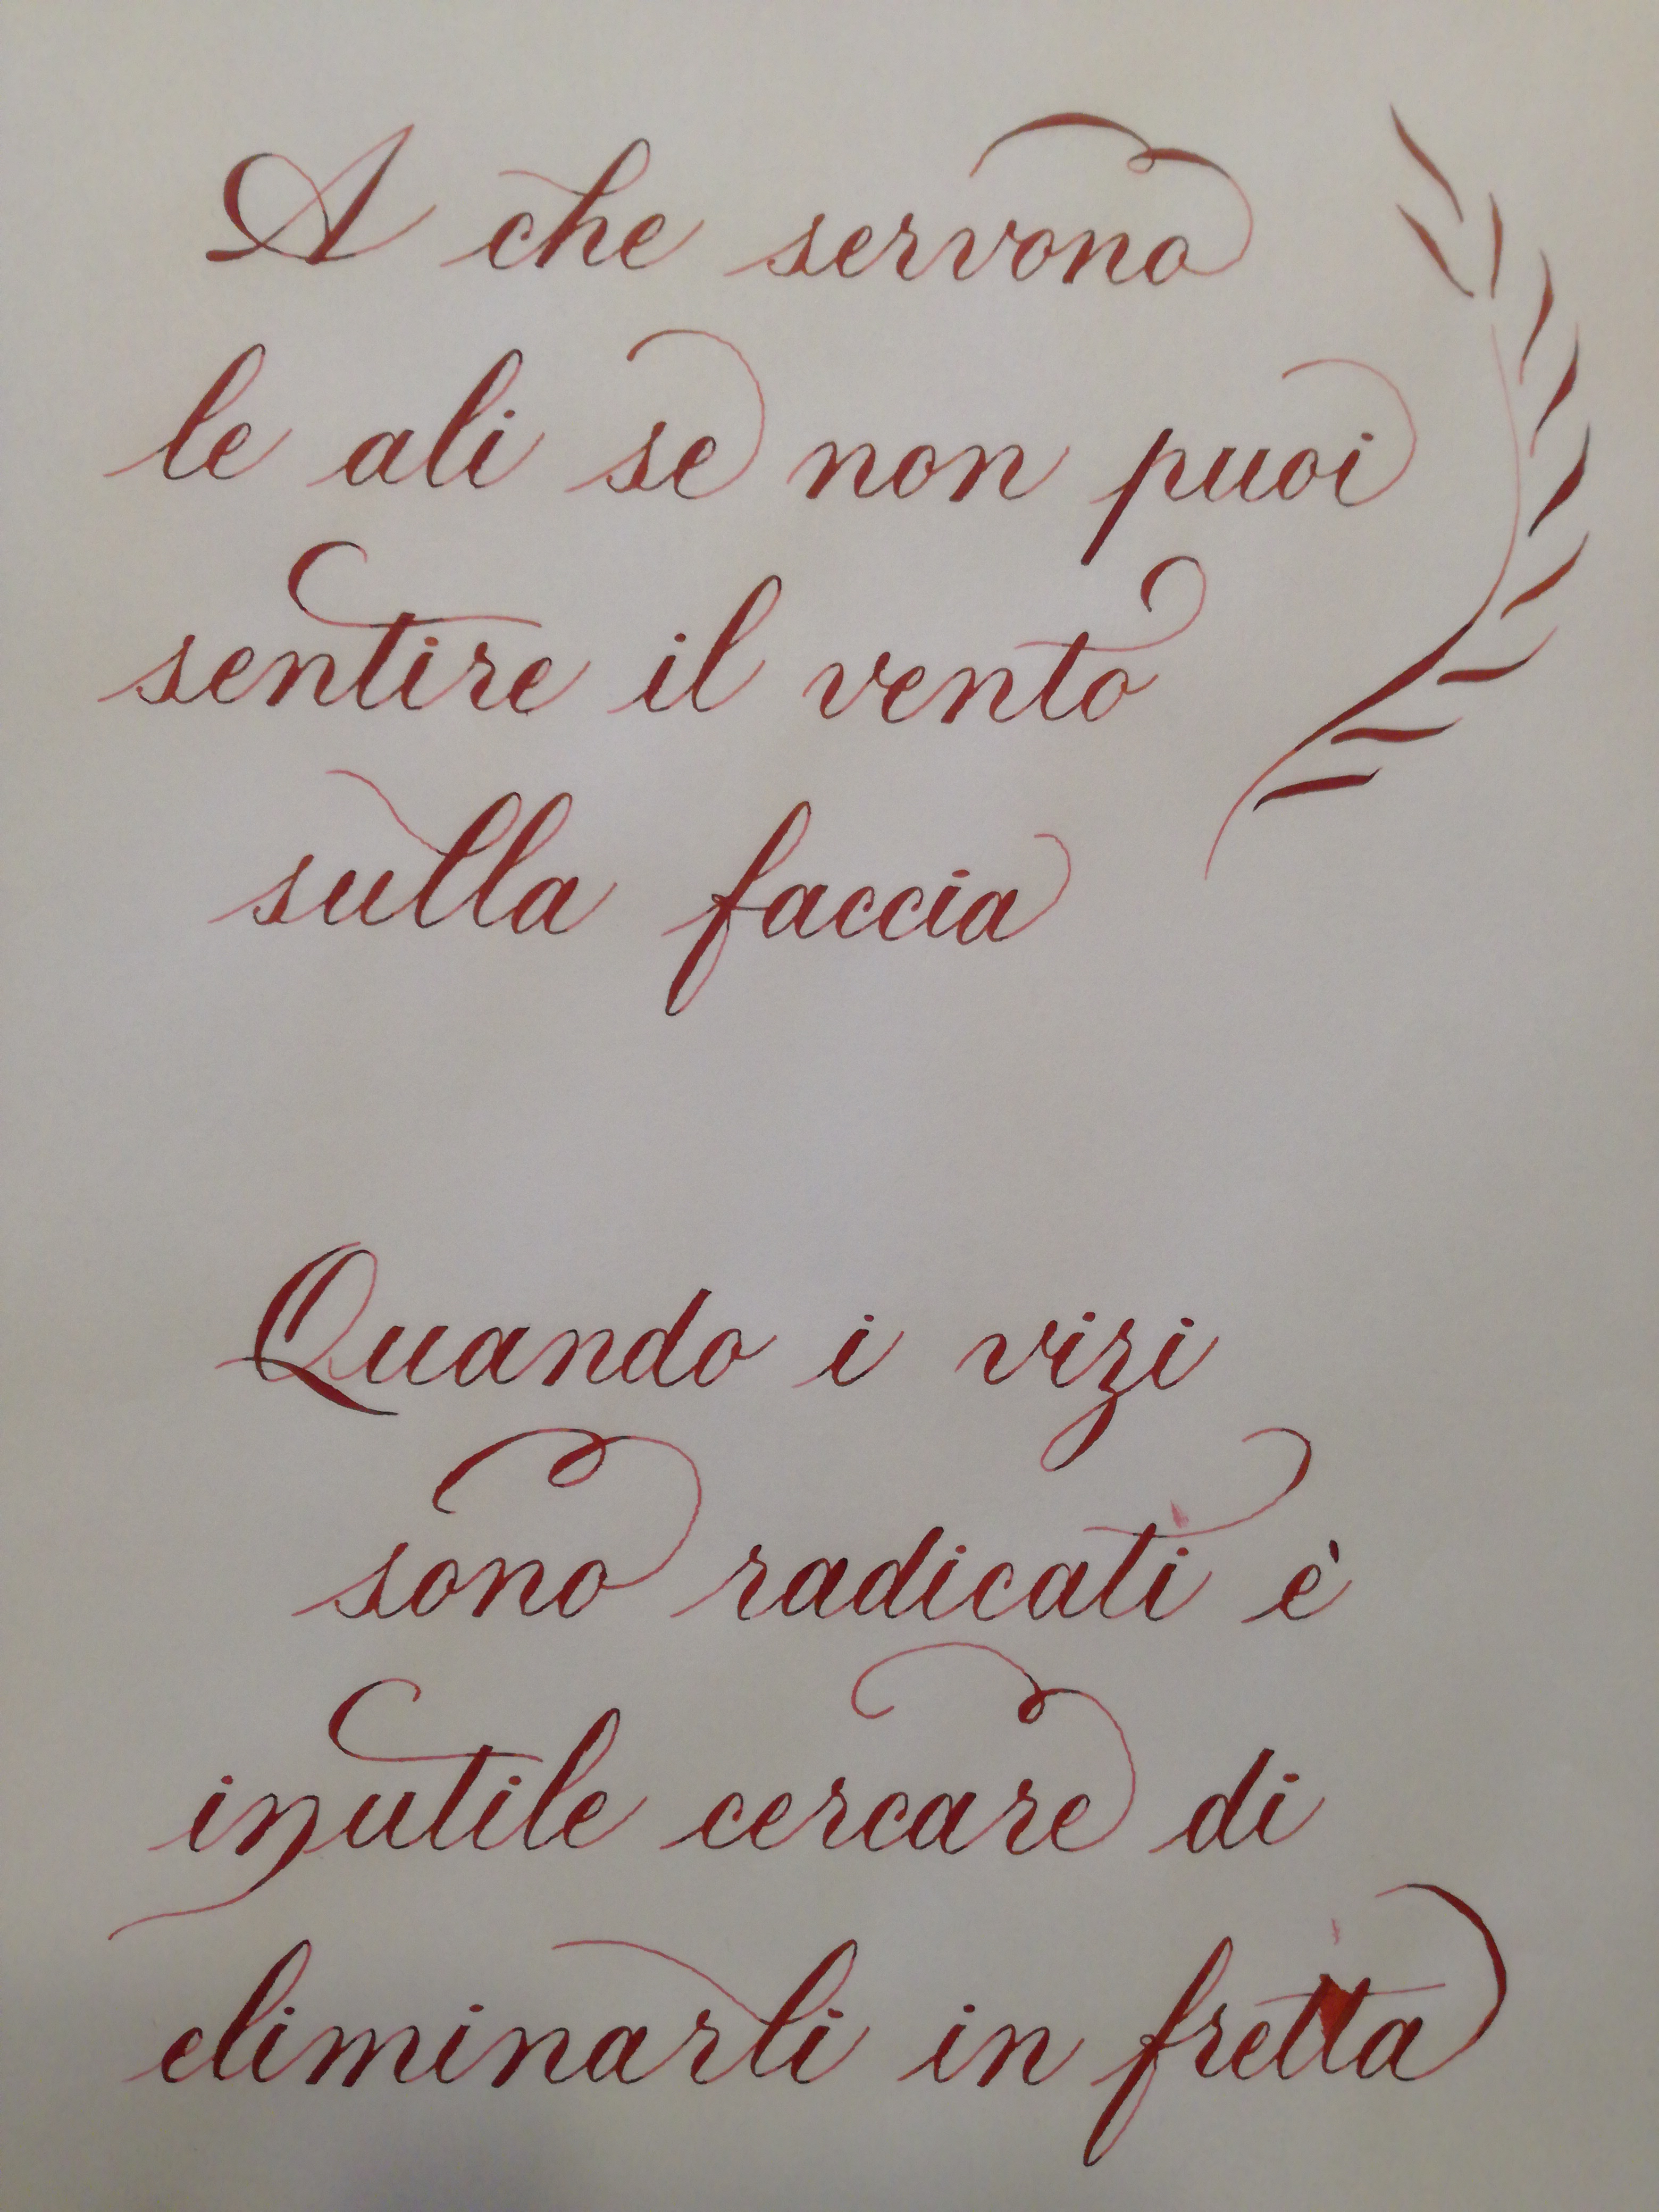 A che servono
le ali se non puoi
sentire il vento
sulla faccia
Quando i vizi
sono radicati è
inutile cercare di
eliminarli in fretta